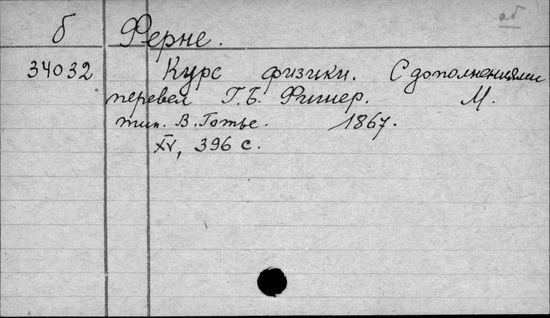 аб
б Ферне.
34032 Курс физики. С дополнениями
перевел Г.Б. Фишер. М.
тип. В. Готье. 1867.
XV, 396 с.